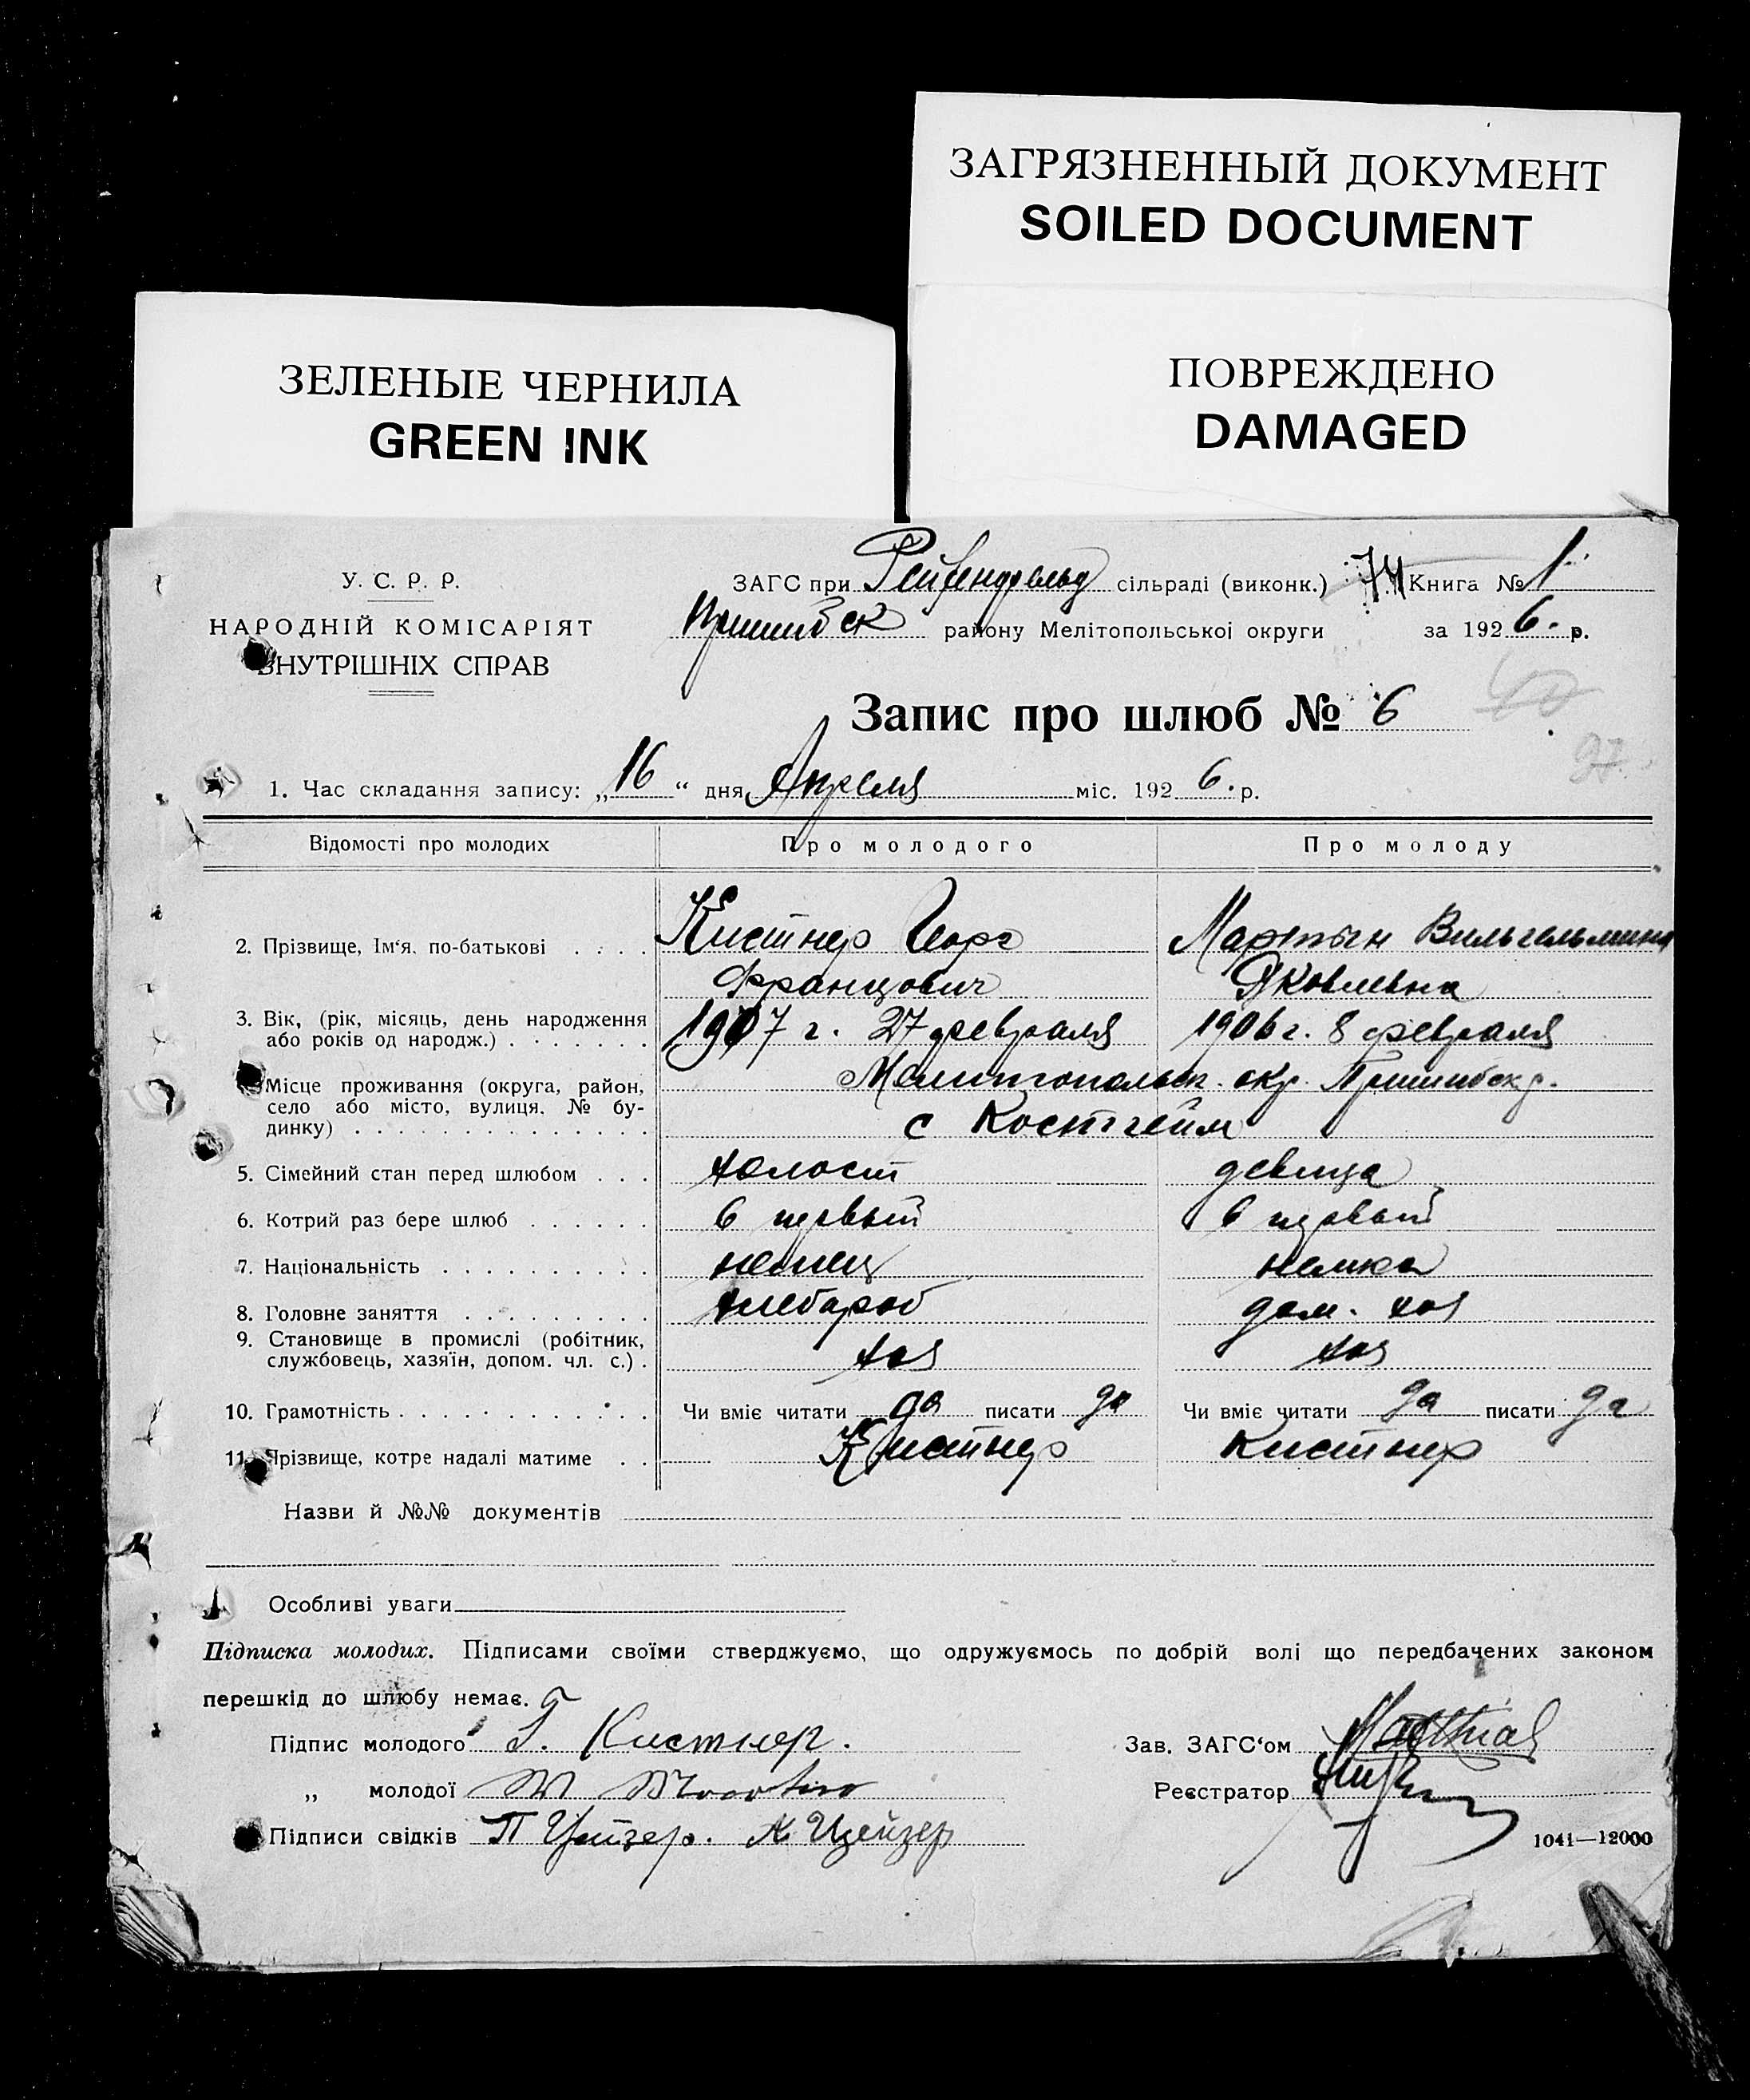 ЗАГРЯЗНЕННЫЙ ДОКУМЕНТ
SOILED DOCUMENT
ЗЕЛЕНЫЕ ЧЕРНИЛА
GREEN INK
ПОВРЕЖДЕНО
DAMAGED
У. С. Р. Р.
НАРОДНІЙ КОМІСАРІЯТ
ВНУТРІШНІХ СПРАВ
ЗАГС при Рейхендфельд сільраді (виконк.) 74 Книга № 1
Пришибск району Мелітопольської округи за 1926. р.
Запис про шлюб № 6
1. Час складання запису: „16“ дня Апреля міс. 1926. р.
Відомості про молодих Про молодого Про молоду
2. Прізвище, Ім‘я, по-батькові . . . . Кистнер Георг Мартын Вильгельмина
Францович Яковлевна
3. Вік, (рік, місяць, день народження
або років од народж.) . . . . . . . 1907 г. 27 февраля 1906 г. 8 февраля
Місце проживання (округа, район, Мелитопольск. окр. Пришибск р.
село або місто, вулиця, № бу-
динку) . . . . . . . . . . . . . . с Костгейм
5. Сімейний стан перед шлюбом . . . холост девица
6. Котрий раз бере шлюб . . . . . . в первый в первый
7. Національність . . . . . . . . . . немец немка
8. Головне заняття . . . . . . . . . хлебороб дом. хоз
9. Становище в промислі (робітник,
службовець, хазяїн, допом. чл. с.) . хоз хоз
10. Грамотність . . . . . . . . . . . . Чи вміє читати да писати да Чи вміє читати да писати да
11. Прізвище, котре надалі матиме . . Кистнер Кистнер
Назви й №№ документів
Особливі уваги
Підписка молодих. Підписами своїми стверджуємо, що одружуємось по добрій волі що передбачених законом
перешкід до шлюбу немає.
Підпис молодого Г. Кистнер. Зав. ЗАГС‘ом Matthias
„ молодої W Martin Реєстратор
Підписи свідків П Цейзер. К Цейзер
1041—12000